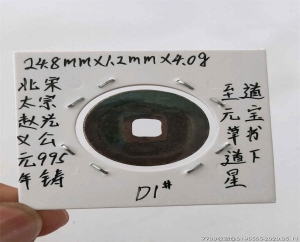 24.8mm×1.2mm×4.0g
北宋
太宗
赵光
义公
元995
年铸
至道
元宝
草书
道下
星
D1#